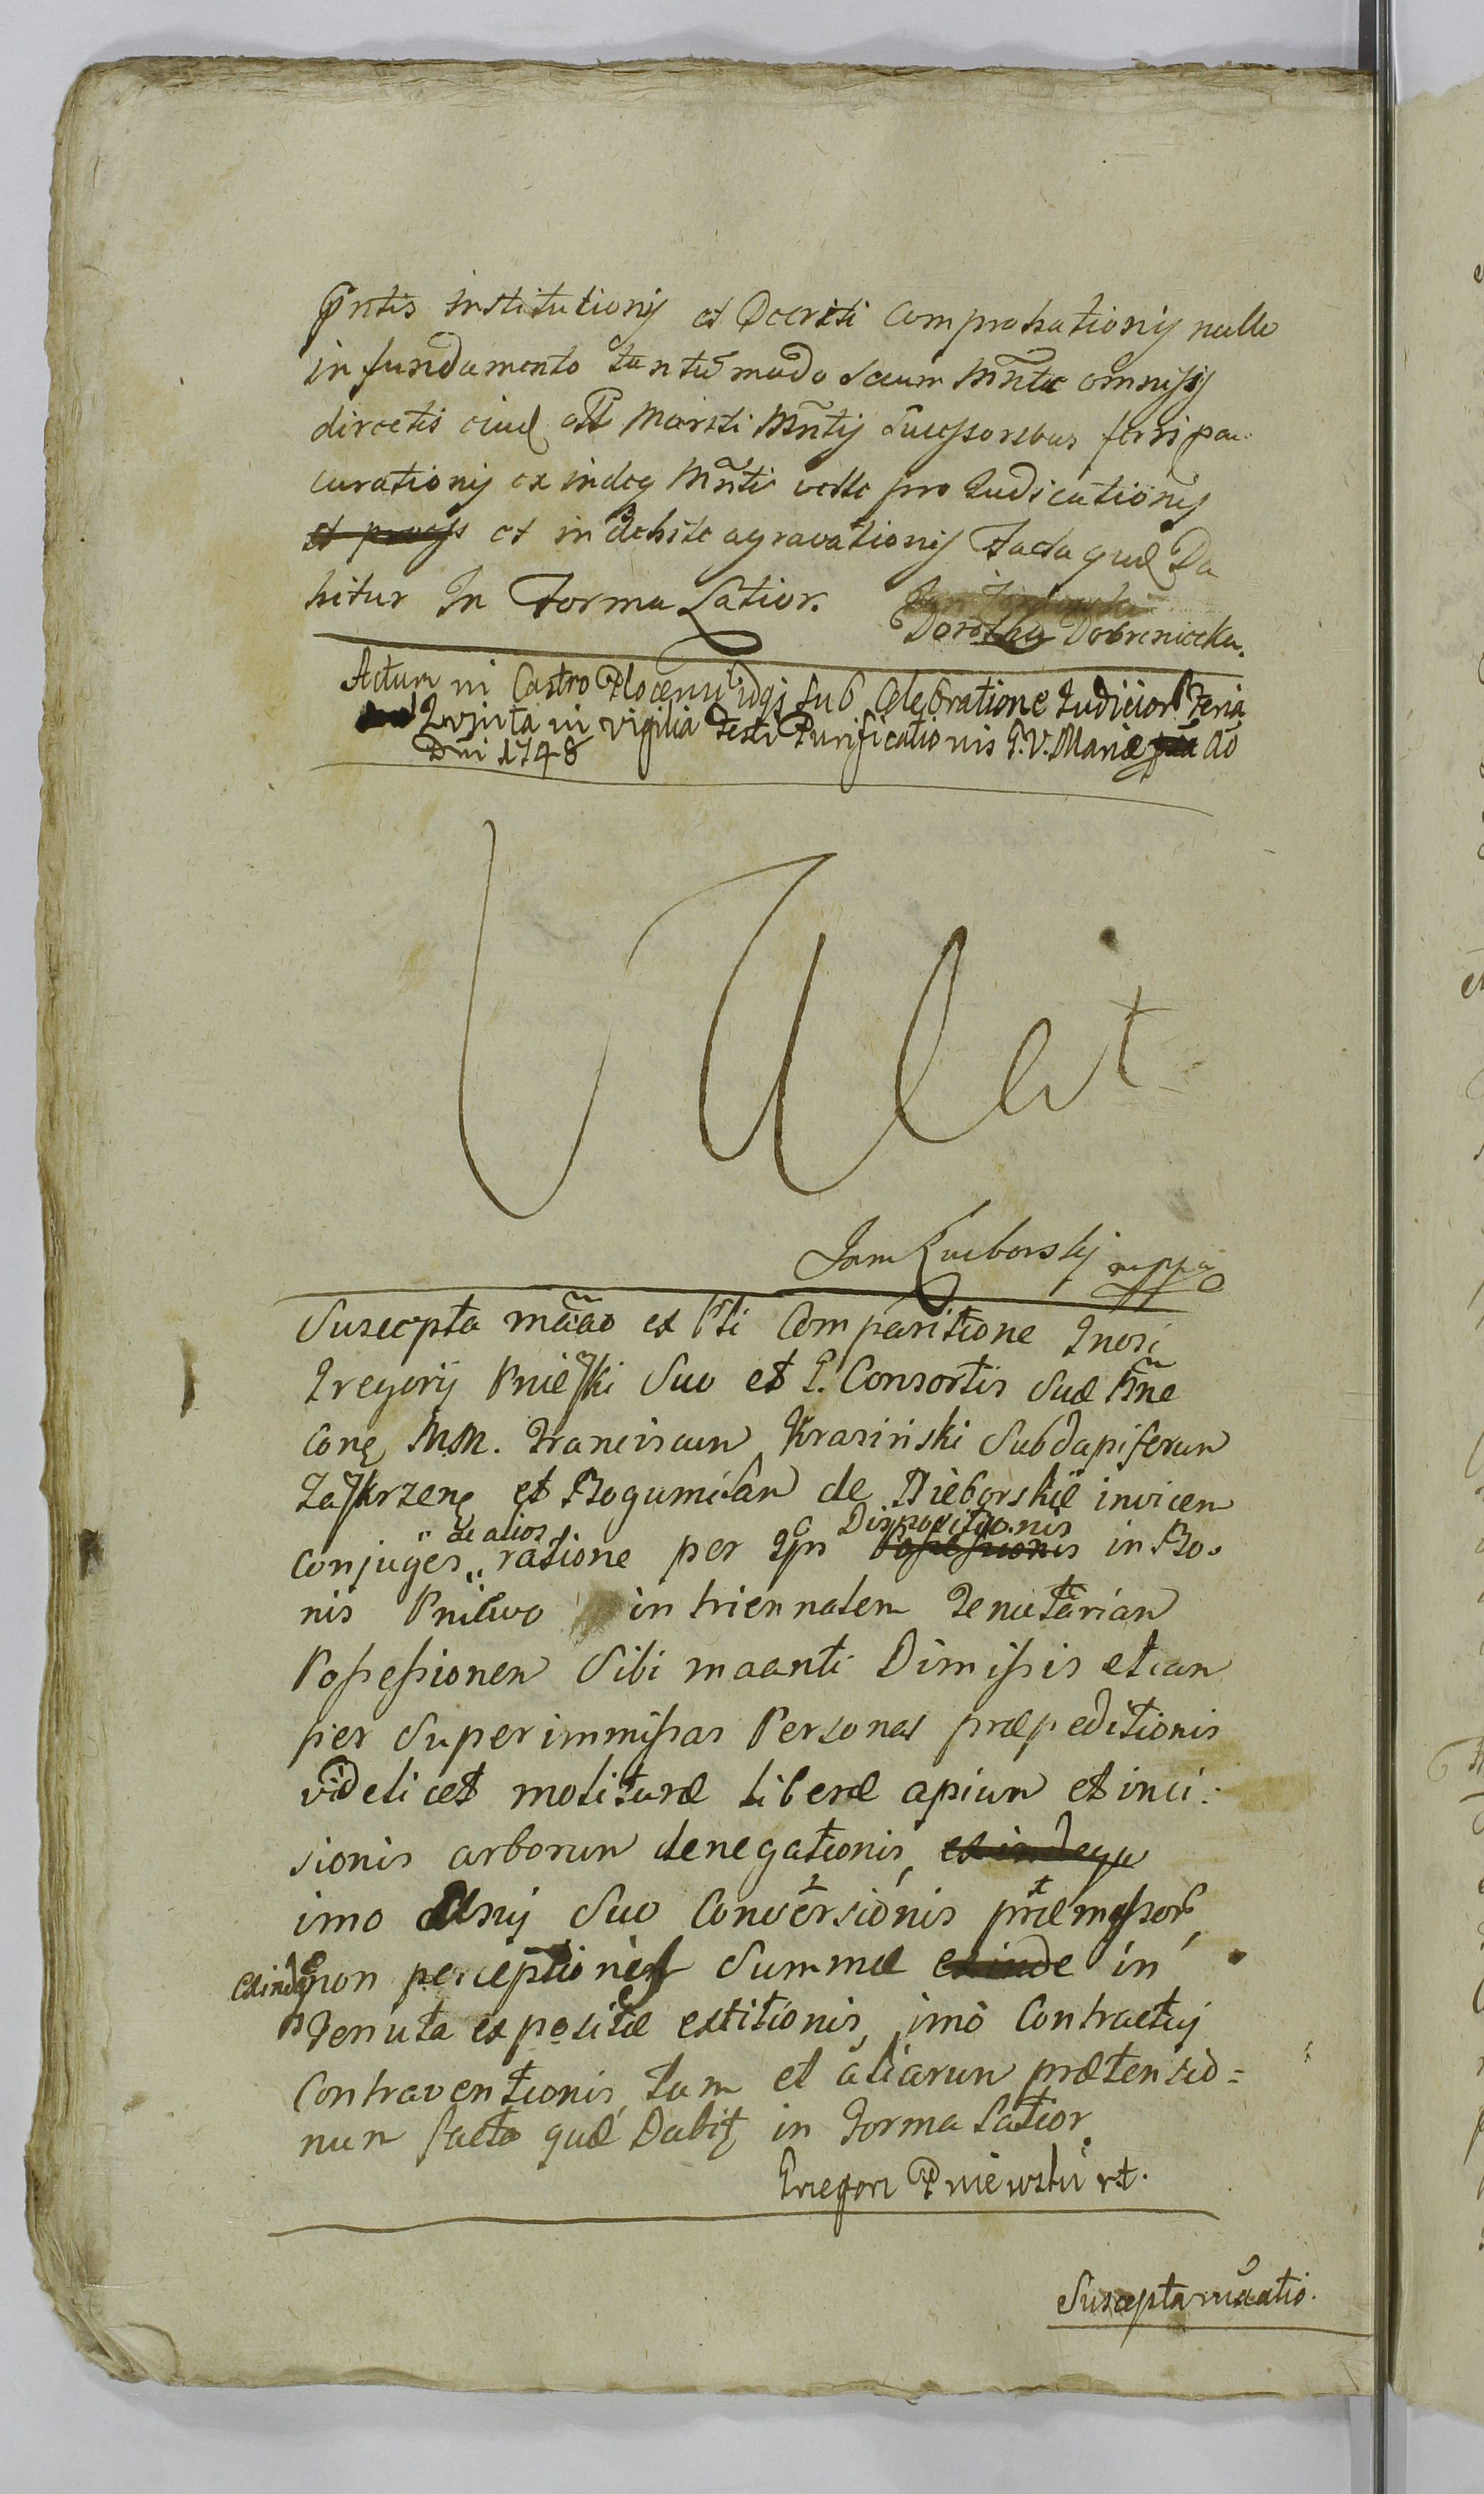 pntis institutionis et Decreti comprobationis nullo
in fundamento tantumodo secum Mnte omnisis
directis eiud att Mariti Mntis Sucessoribus ferri pa
curationis ex indeq Mnti velle pro Iudicationis
et process et in debite agravationis facta quæ Da
bitur In Forma Latior.
Dorothy Dobrzeniecka.
Actum in Castro Plocensi idqs sub Celebratione Iudicior Feria
Quinta in vigilia Festi Purificationis B.V. Mariæ Ao
Dni 1748
Valeit
Jam Zuchorskj mppa
Suscepta maao ex Pti Comparitione Gnosi
Gregorij Pniewski Suo et G. Consortis Suæ Nne
conq MM. Franciscum Krasinski Subdapiferum
Zaskrzene et Bogumilam de Nieborskie invicem
de alios Dispositionis
conjuges ratione per Ipsos Possessionis in Bo
nis Pniewo in triennalem Tenutariam
Possessionem Sibi maanti Dimissis etiam
per Superimmissas Personas præpeditionis
videlicet molituræ liberæ apium et inci:
sionis arborum denegationis, ex indequ
imo Usuj Suo Conversionis præmissor
exinde non perceptionis Summæ exinde in
Tenuta expositæ extitionis, imo Contractuj
Contraventionis, tum et aliarum prætensio=
num facta quæ Dabitq in Forma Latior.
Gregori Pniewski rt.
Suscepta maatio.